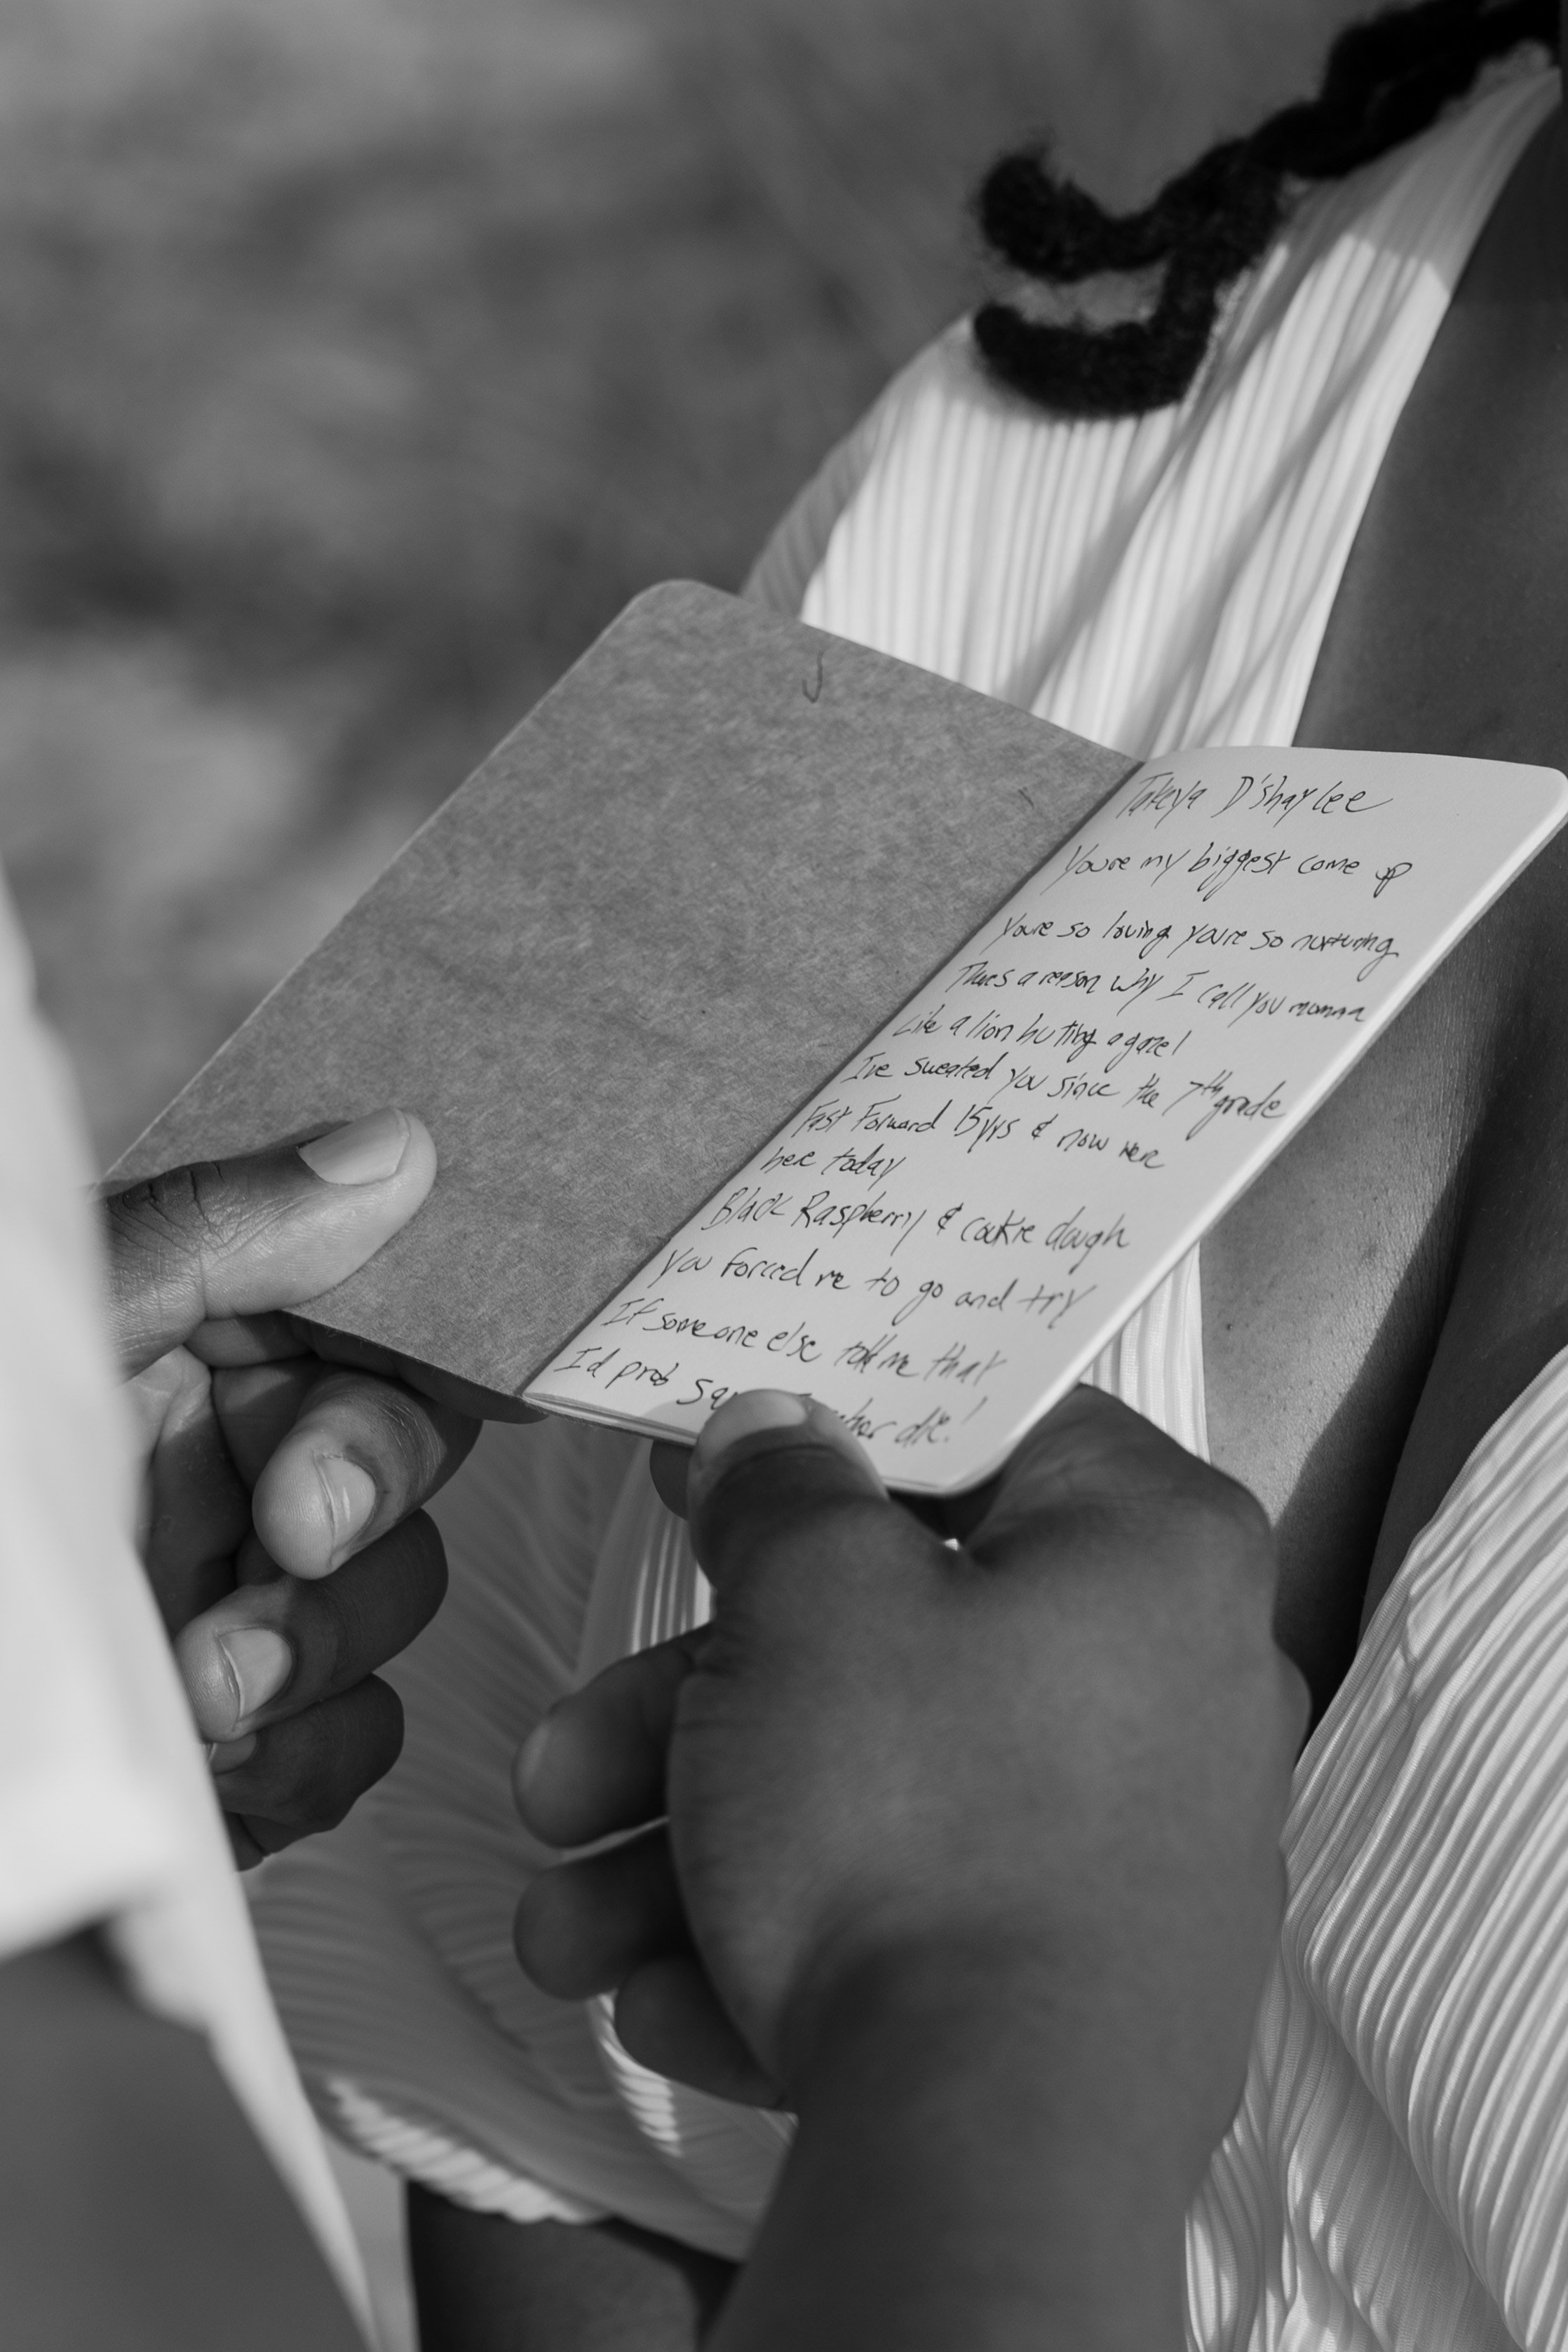 Takeya D'shaylee
Youre my biggest come up
Youre so loving youre so nurturing
Theres a reason why I call you momma
Like a lion huting a gazel
I've sweated you since the 7th grade
Fast Forward 15yrs & now were
here today
Black Raspberry & cookie dough
You forced me to go and try
If someone else told me that
I'd prob die!